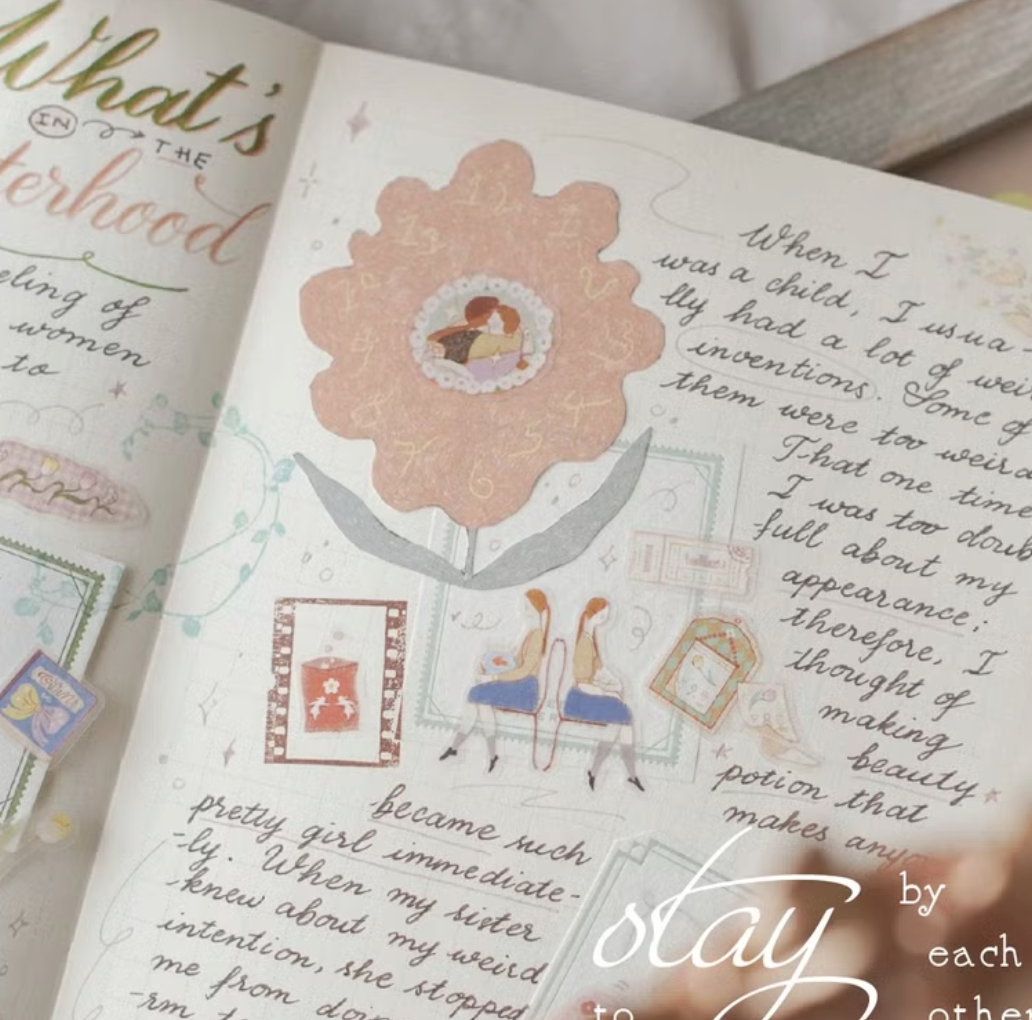 What's
IN THE
terhood
eling of
women
to
12
1
2
3
4
5
6
7
8
9
10
When I
was a child, I usua-
lly had a lot of weir
inventions. Some of
them were too weird
That one time
I was too doub
full about my
appearance;
therefore, I
thought of
making
beauty
potion that
makes anyo
became such
pretty girl immediate-
ly. When my sister
knew about my weird
intention, she stopped
me from doin
-rm
stay by
each
to other